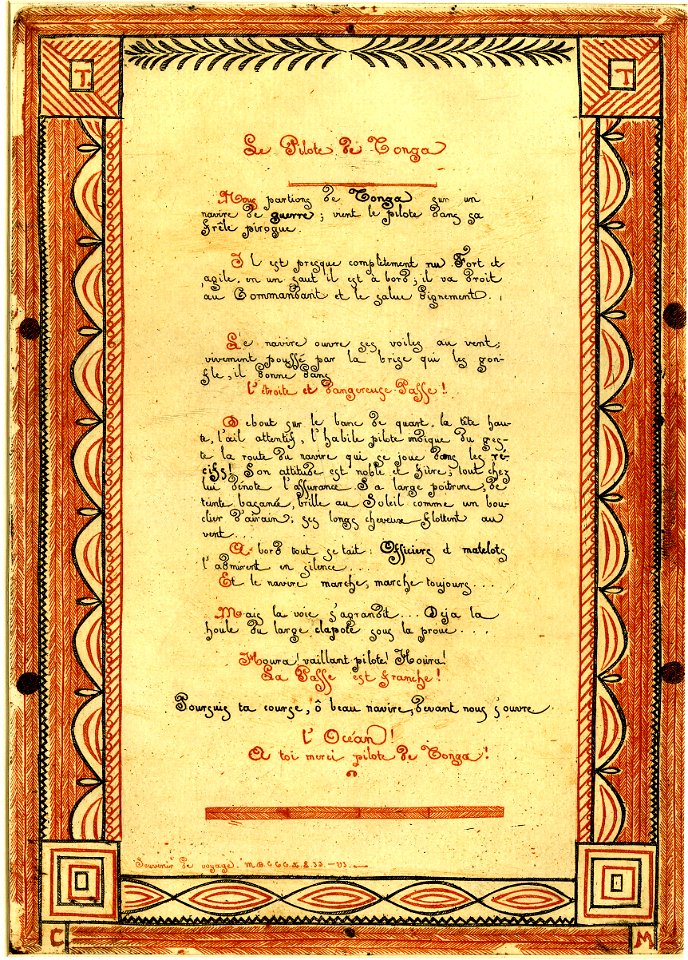 T T
Le Pilote de Tonga
Nous partions de Tonga sur un
navire de guerre; vient le pilote dans sa
frêle pirogue.
Il est presque complètement nu Fort et
agile, en un saut il est à bord; il va droit
au Commandant et le salue dignement.
Le navire ouvre ses voiles au vent;
vivement poussé par la brise qui les gon-
fle, il donne dans
l'étroite et dangereuse Passe!
Debout sur le banc de quart, la tête hau-
te, l'œil attentif, l'habile pilote indique du ges-
te la route du navire qui se joue dans les ré-
cifs! Son attitude est noble et fière; tout chez
lui dénote l'assurance. Sa large poitrine, de
teinte basanée, brille au Soleil comme un bou-
clier d'airain; ses longs cheveux flottent au
vent...
A bord tout se tait: Officiers et matelots
l'admirent en silence...
Et le navire marche, marche toujours...
Mais la voie s'agrandit... Déja la
houle du large clapote sous la proue....
Houra! vaillant pilote! Houra!
La Passe est franche!
Poursuis ta course, ô beau navire, devant nous s'ouvre
l'Océan!
A toi merci pilote de Tonga!
Souvenir de voyage.
C M